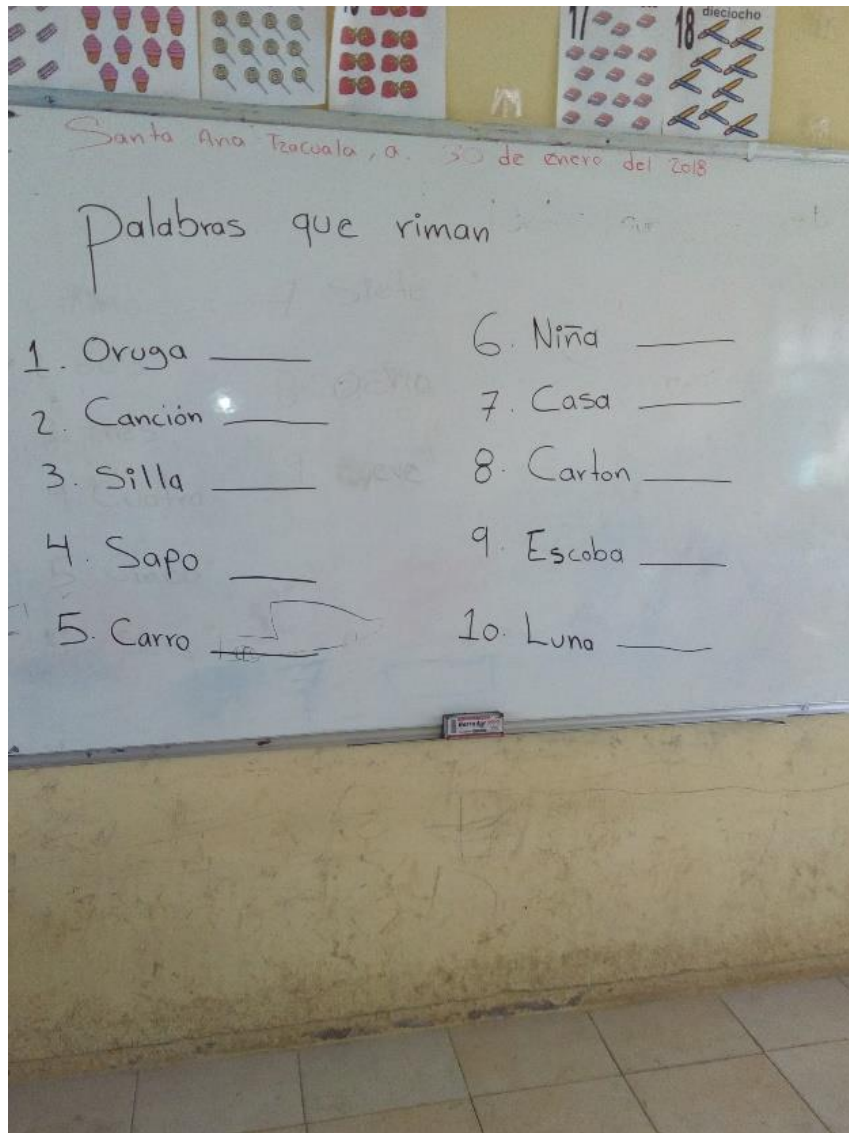 17
18 dieciocho
Santa Ana Tzacuala, a. 30 de enero del 2018
Palabras que riman
1. Oruga ____
2. Canción ____
3. Silla ____
4. Sapo ____
5. Carro ____
6. Niña ____
7. Casa ____
8. Carton ____
9. Escoba ____
10. Luna ____